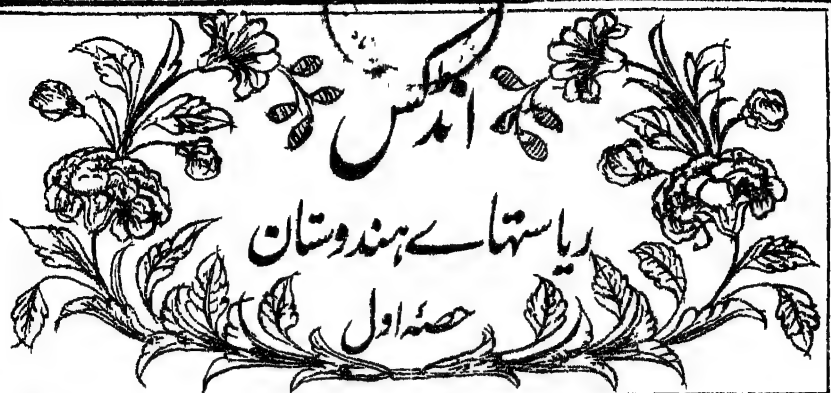 انڈکس
ریاستہاے ہندوستان
حصہ اول